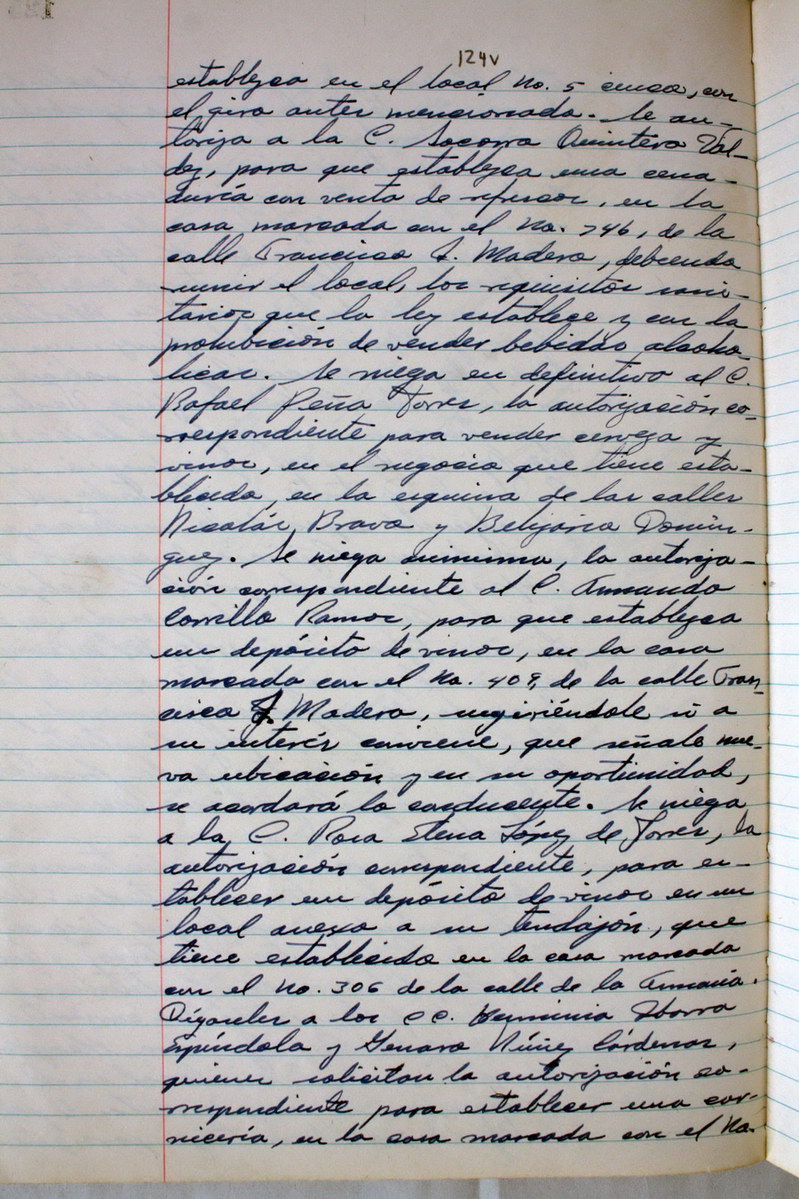 124v
establezca en el local No. 5 cinco, con
el giro antes mencionado. Se au-
toriza a la C. Socorro Quintero Val-
dez, para que establezca una cena-
duría con venta de refrescos, en la
casa marcada con el No. 746, de la
calle Francisco I. Madero, debiendo
reunir el local, los requisitos sani-
tarios que la ley establece y con la
prohibición de vender bebidas alcoho-
licas. Se niega en definitivo al C.
Rafael Peña Torres, la autorización co-
rrespondiente para vender cerveza y
vinos, en el negocio que tiene esta-
blecido, en la esquina de las calles
Nicolás, Bravo y Belizario Domín-
guez. Se niega asimismo, la autoriza-
ción correspondiente al C. Armando
Carrillo Ramos, para que establezca
un depósito de vinos, en la casa
marcada con el No. 409, de la calle Fran-
cisco I. Madero, sugiriéndole si a
su interés conviene, que señale nue-
va ubicación y en su oportunidad,
se acordará lo conducente. Se niega
a la C. Rosa Elena López de Torres, la
autorización correspondiente, para es-
tablecer un depósito de vinos en un
local anexo a su tendajón, que
tiene establecido en la casa marcada
con el No. 306 de la calle de la Armonía.
Dígaseles a los CC. Herminia Ibarra
Espíndola y Genaro Núñez Cárdenas,
quienes solicitan la autorización co-
rrespondiente para establecer una car-
nicería, en la casa marcada con el No.